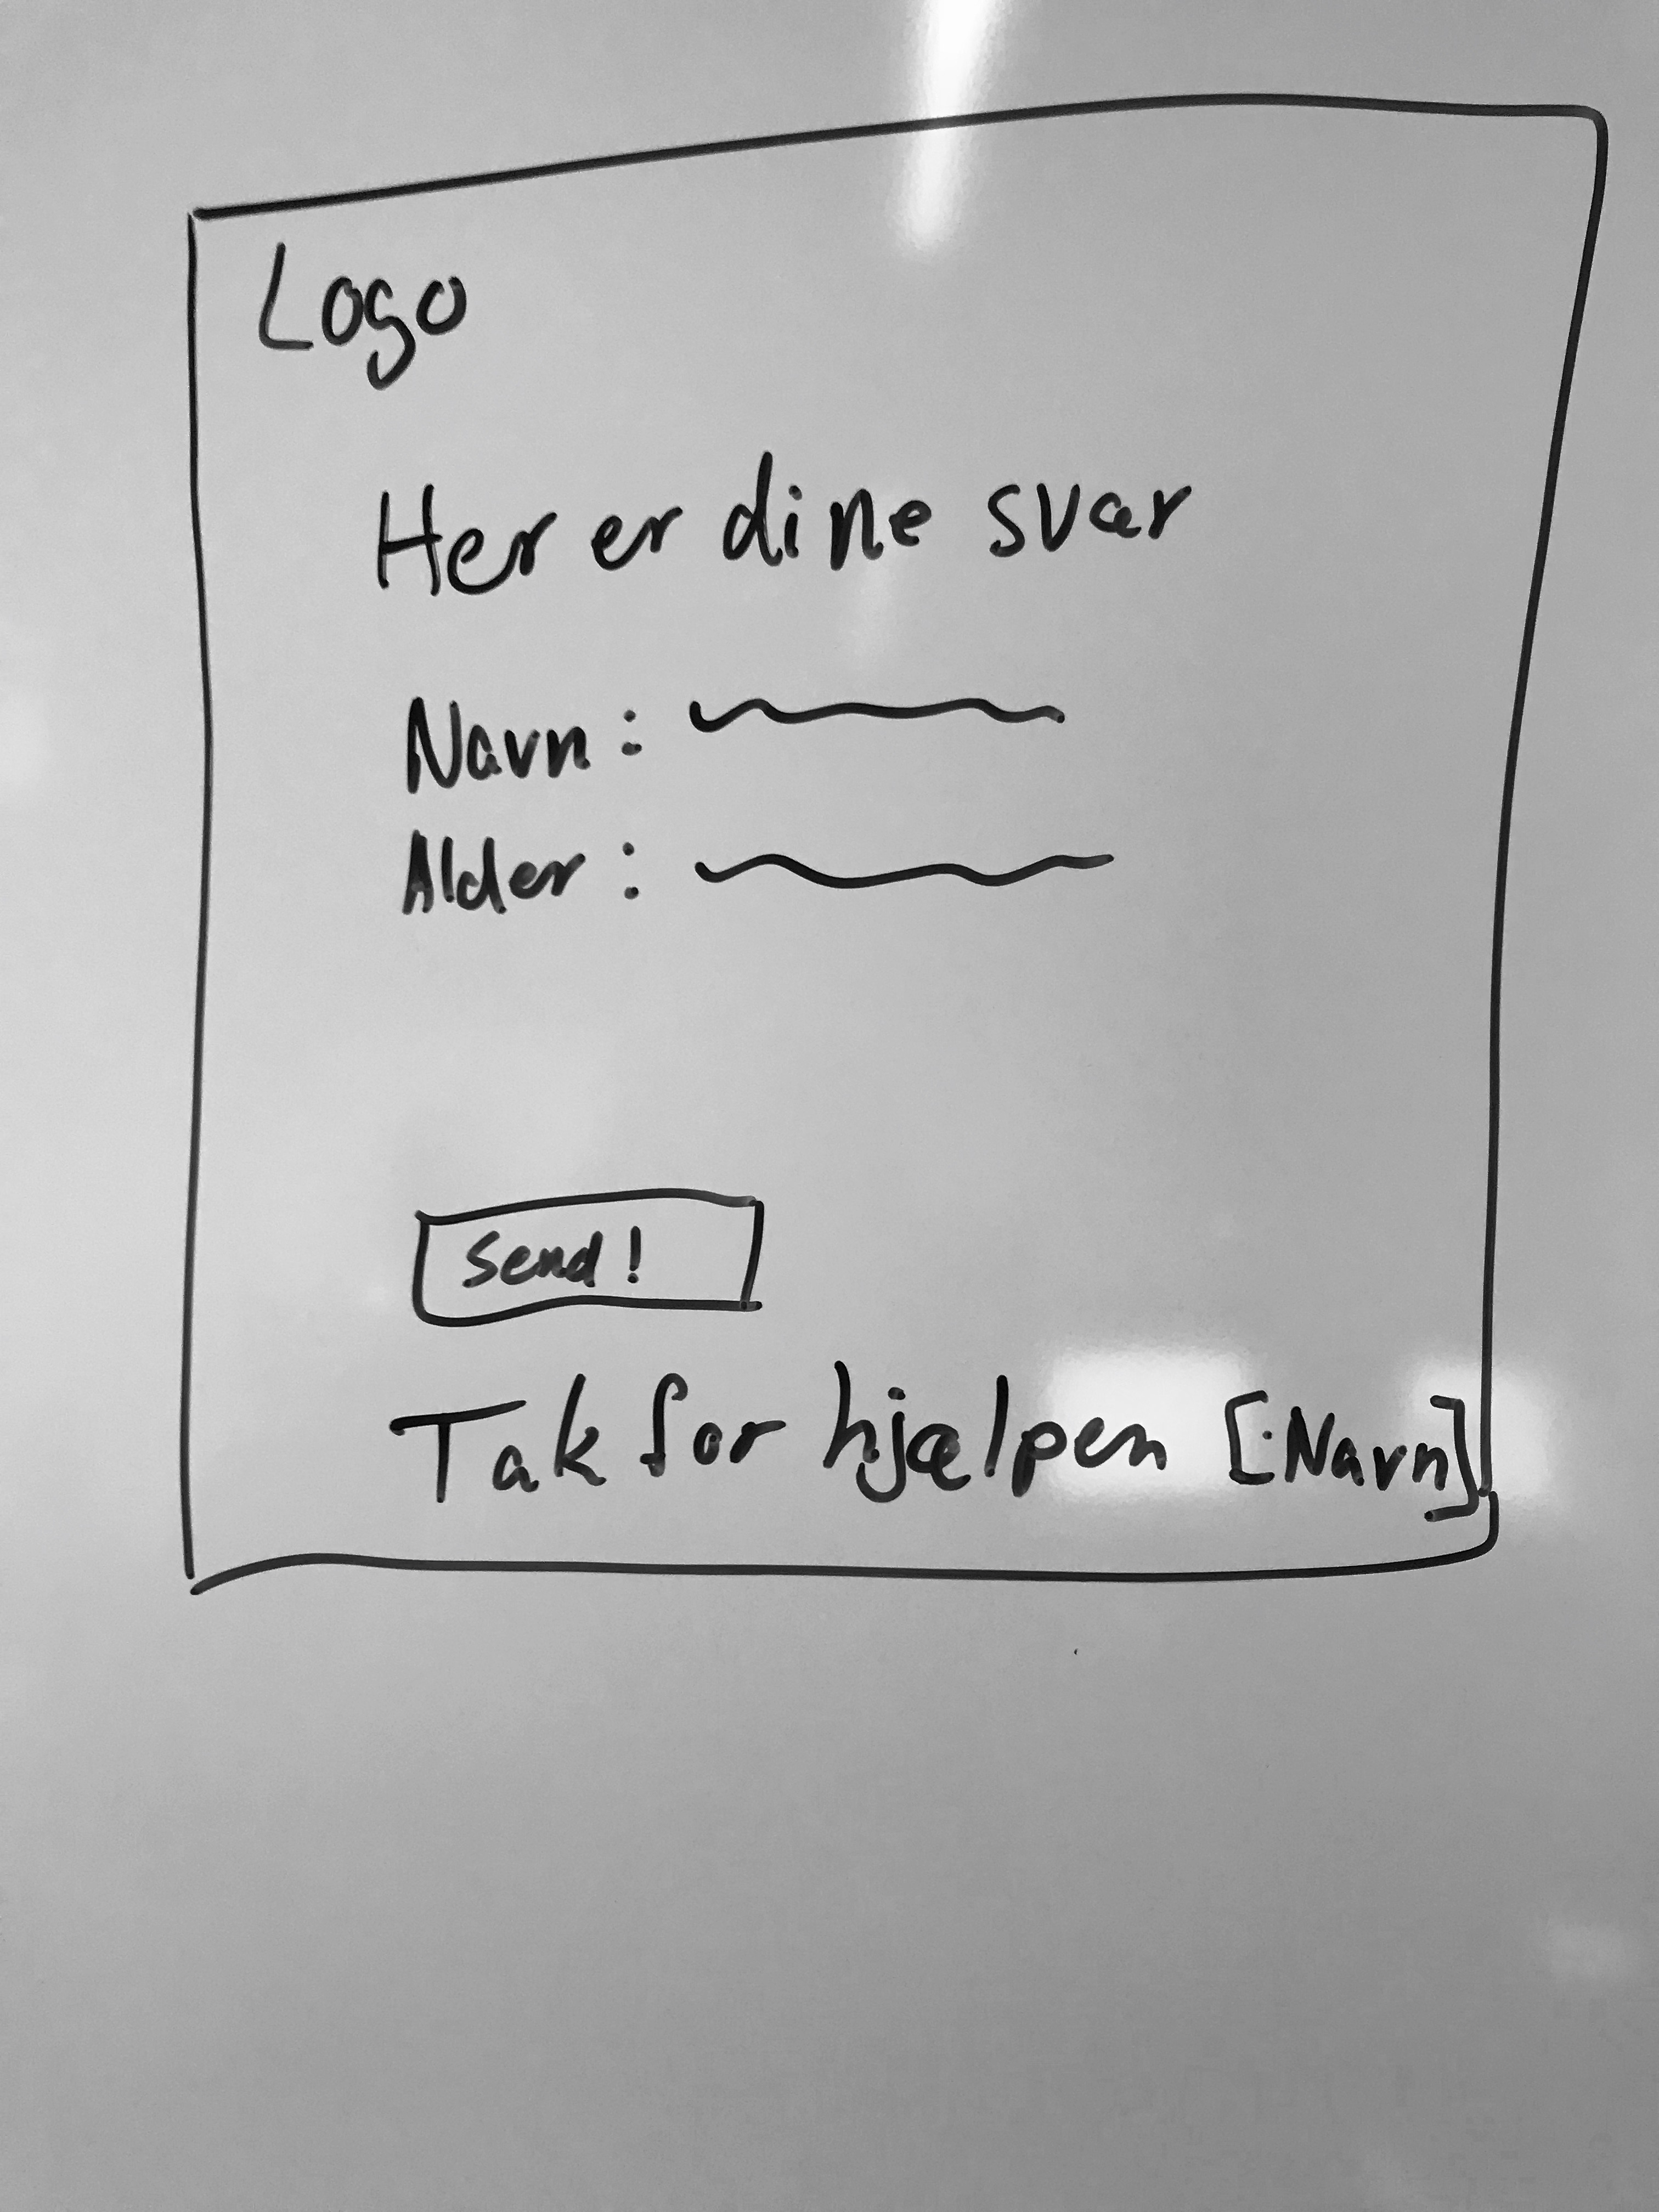 Logo
Her er dine svar
Navn :
Alder :
Send !
Tak for hjælpen [Navn]